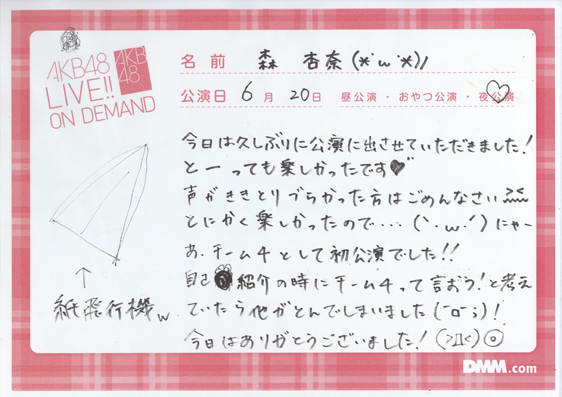 AKB48
LIVE!!
ON DEMAND
AKB
48
名前 森 杏奈(*´ω`*)ﾉ
公演日 6月20日 昼公演・おやつ公演・夜公演
今日は久しぶりに公演に出させていただきました!
と一っても楽しかったです♥
声がききとりづらかった方はごめんなさい
とにかく楽しかったので…(`・ω・´)にゃー
あ、チーム4として初公演でした!!
自己紹介の時にチーム4って言おう!と考え
ていたら他がとんでしまいました(ﾟロﾟ;)!
今日はありがとうございました!(>Д<)◎
↑
紙飛行機w
DMM.com